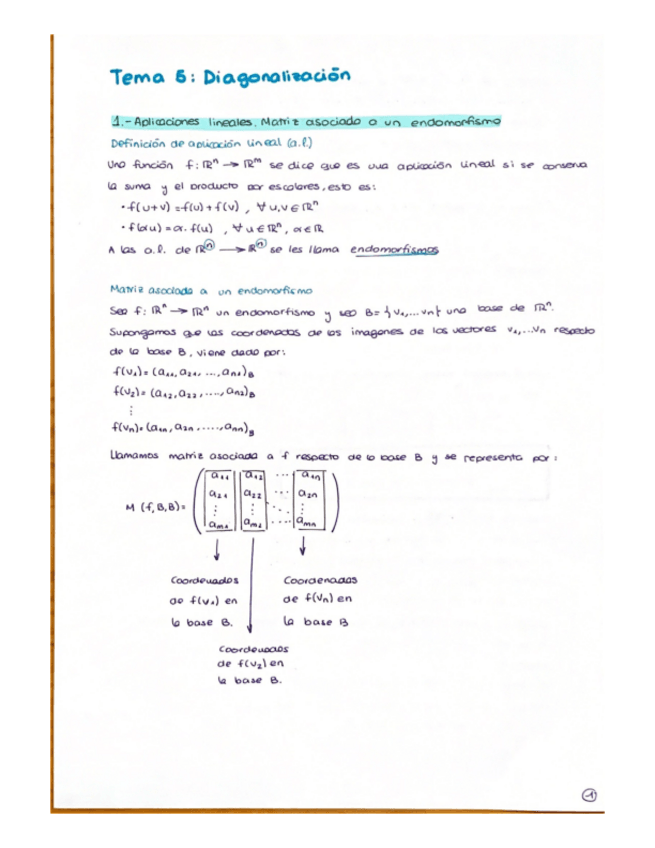 Tema 5: Diagonalización
1.- Aplicaciones lineales. Matriz asociada a un endomorfismo
Definición de aplicación lineal (a.l.)
Una función f: ℝⁿ → ℝᵐ se dice que es una aplicación lineal si se conserva
la suma y el producto por escalares, esto es:
· f(u+v) = f(u) + f(v) , ∀ u,v ∈ ℝⁿ
· f(αu) = α. f(u) , ∀ u ∈ ℝⁿ, α ∈ ℝ
A las a.l. de ℝⁿ → ℝⁿ se les llama endomorfismos
Matriz asociada a un endomorfismo
Sea f: ℝⁿ → ℝⁿ un endomorfismo y sea B = {v₁,...vn} una base de ℝⁿ.
Supongamos que las coordenadas de las imagenes de los vectores v₁,...vn respecto
de la base B, viene dado por:
f(v₁) = (a₁₁, a₂₁, ..., an₁)B
f(v₂) = (a₁₂, a₂₂, ...., an₂)B
⋮
f(vn) = (a₁n, a₂n, ....., ann)B
Llamamos matriz asociada a f respecto de la base B y se representa por:
a₁₁ a₁₂ ... a₁n
a₂₁ a₂₂ ... a₂n
M (f, B, B) =
⋮ ⋮ ⋱ ⋮
am₁ am₂ .... amn
Coordenadas Coordenadas
de f(v₁) en de f(vn) en
la base B. la base B
Coordenadas
de f(v₂) en
la base B.
1